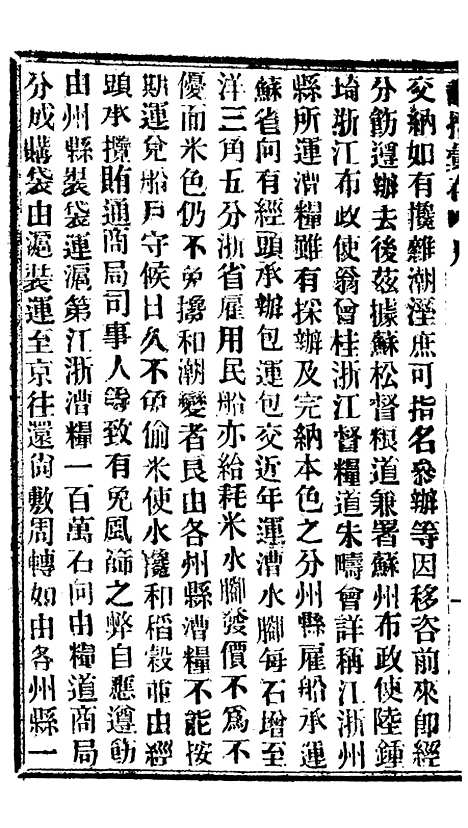 交納如有攙雜潮溼庶可指名叅辦等因移咨前來卽經
分飭遵辦去後茲據蘇松督糧道兼署蘇州布政使陸鍾
琦浙江布政使翁曾桂浙江督糧道朱疇會詳稱江浙州
縣所運漕糧雖有採辦及完納本色之分州縣雇船承運
蘇省向有經頭承辦包運包交近年運漕水腳每石增至
洋三角五分浙省雇用民船亦給耗米水腳發價不爲不
優而米色仍不免攙和潮變者良由各州縣漕糧不能按
期運兌船戶守候日久不免偷米使水攙和稻穀亦由經
頭承攬賄通商局司事人等致有免風篩之弊自應遵飭
由州縣裝袋運滬第江浙漕糧一百萬石向由糧道商局
分成購袋由滬裝運至京往還尙敷周轉如由各州縣一